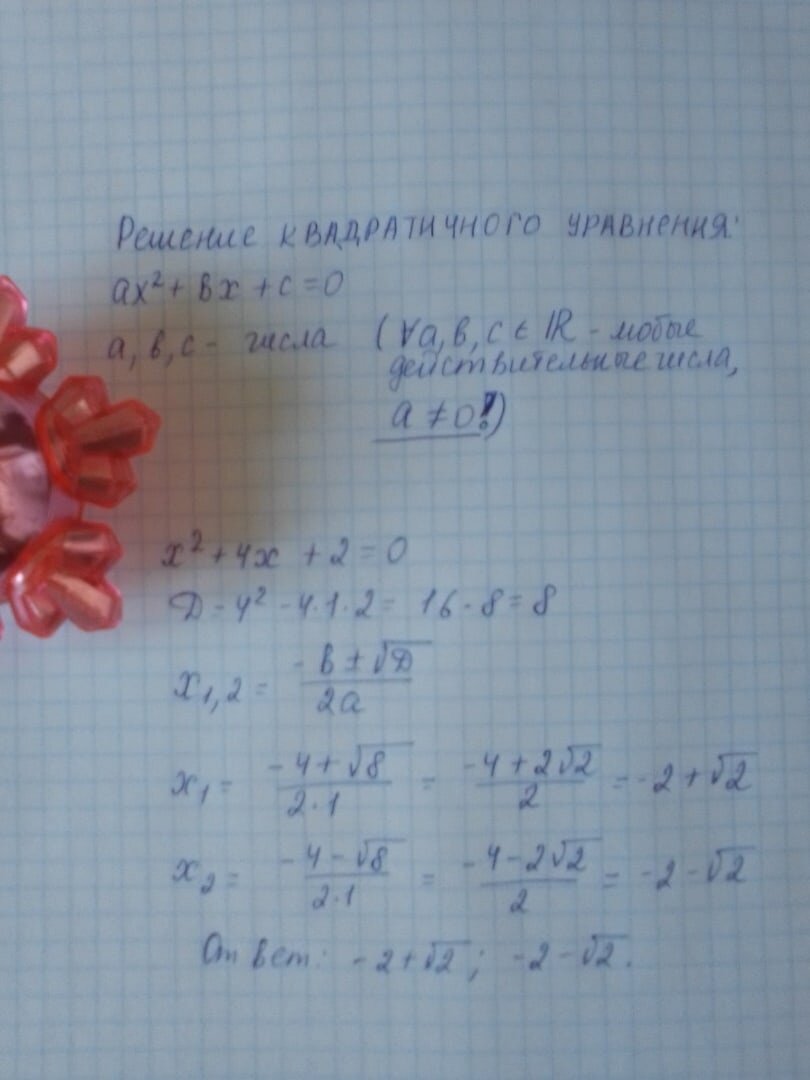 Решение квадратичного уравнения:
ax² + bx + c = 0
a, b, c - числа (∀a, b, c ∈ ℝ - любые
действительные числа,
a ≠ 0!)
x² + 4x + 2 = 0
D = 4² - 4·1·2 = 16 - 8 = 8
x₁,₂ = (-b ± √D)/(2a)
x₁ = (-4 + √8)/(2·1) = (-4 + 2√2)/2 = -2 + √2
x₂ = (-4 - √8)/(2·1) = (-4 - 2√2)/2 = -2 - √2
Ответ: -2 + √2; -2 - √2.